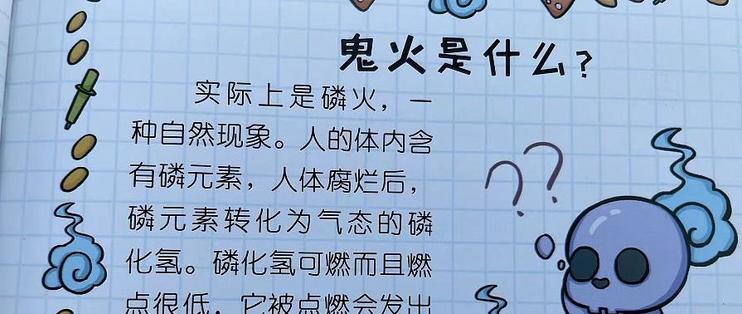 鬼火是什么?
实际上是磷火，一
种自然现象。人的体内含
有磷元素，人体腐烂后，
磷元素转化为气态的磷
化氢。磷化氢可燃而且燃
点很低，它被点燃会发出
??